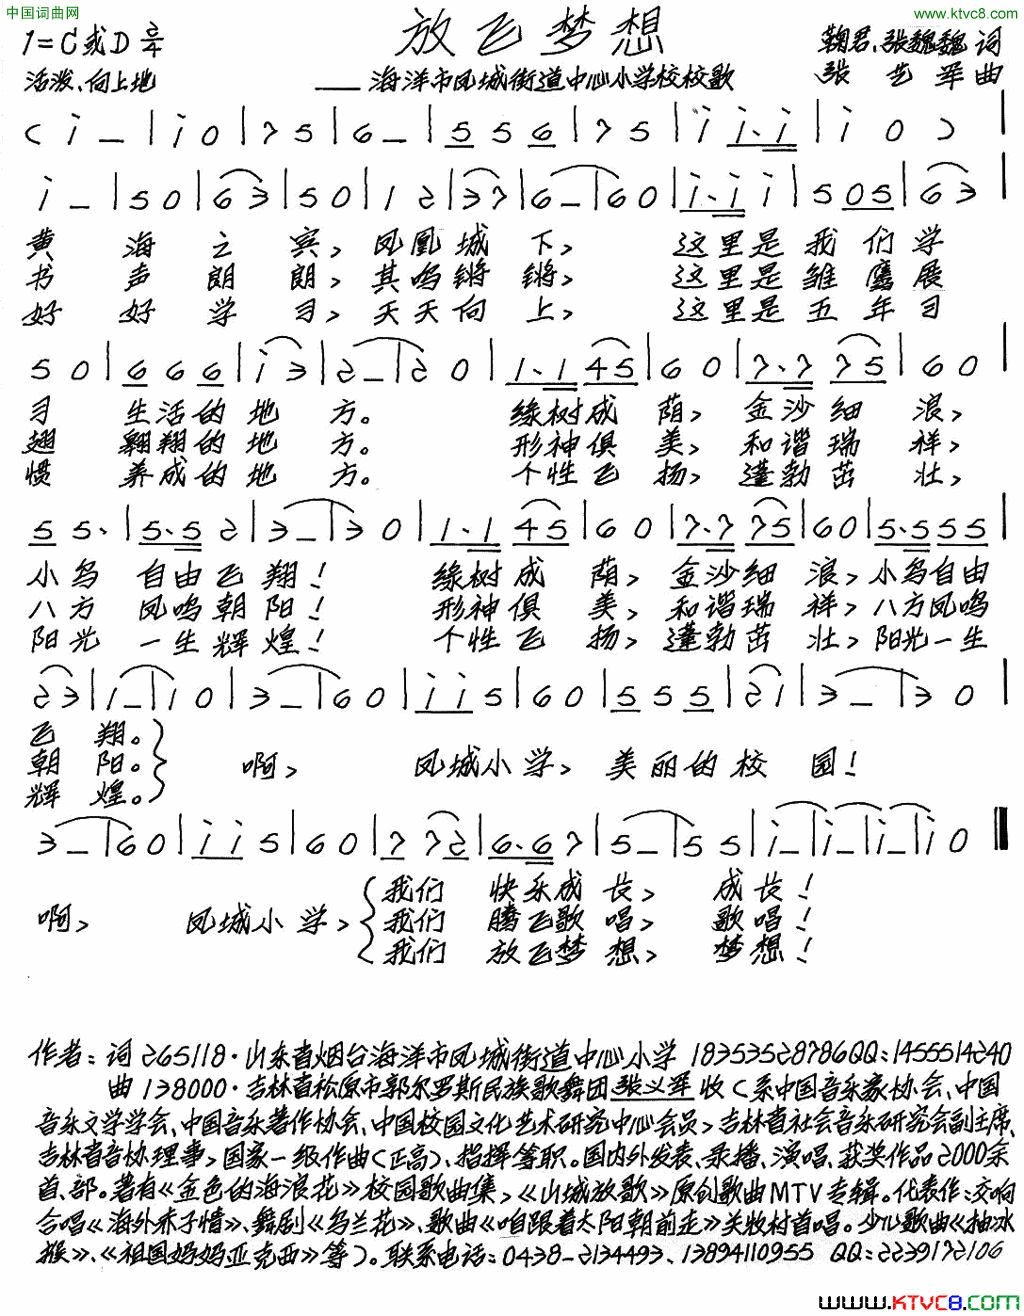 中国词曲网
www.ktvc8.com
放飞梦想
1=C或D 2/4
鞠君、张魏魏 词
活泼、向上地
——海洋市凤城街道中心小学校校歌
张艺军 曲
( i – | i 0 | 7 5 | 6 – | 5 5 6 | 7 5 | i i. i | i 0 ) |
i – | 5 0 | 6 3 | 5 0 | 1 2 | 3 7 | 6 – | 6 0 | i. i i | 5 0 5 | 6 3 |
黄 海 之 宾, 凤凰城 下, 这里是我们学
书 声 朗 朗, 其鸣锵 锵, 这里是雏鹰展
好 好 学 习, 天天向 上, 这里是五年习
5 0 | 6 6 6 | i 3 | 2 – | 2 0 | 1. 1 4 5 | 6 0 | 7. 7 7 5 | 6 0 |
习 生活的 地 方。 缘树成 荫, 金沙细 浪,
翅 翱翔的 地 方。 形神俱 美, 和谐瑞 祥,
惯 养成的 地 方。 个性飞 扬, 蓬勃茁 壮,
5 5. | 5. 5 2 | 3 – | 3 0 | 1. 1 4 5 | 6 0 | 7. 7 7 5 | 6 0 | 5. 5 5 5 |
小鸟 自由飞 翔! 缘树成 荫, 金沙细 浪, 小鸟自由
八方 凤鸣朝 阳! 形神俱 美, 和谐瑞 祥, 八方凤鸣
阳光 一生辉 煌! 个性飞 扬, 蓬勃茁 壮, 阳光一生
2 3 | 1 – | 1 0 | 3 – | 6 0 | i i 5 | 6 0 | 5 5 5 | 2 1 | 3 – | 3 0 |
飞 翔。
朝 阳。 啊, 凤城小 学, 美丽的校 园!
辉 煌。
3 – | 6 0 | i i 5 | 6 0 | 7 7 2 | 6. 6 7 | 5 – | 5 5 | i – | i – | i – | i 0
我们 快乐成 长, 成 长!
啊, 凤城小 学, 我们 腾飞歌 唱, 歌 唱!
我们 放飞梦 想, 梦 想!
作者: 词 265118·山东省烟台海洋市凤城街道中心小学 18353528786 QQ:1455514240
曲 138000·吉林省松原市郭尔罗斯民族歌舞团 张义军 收(系中国音乐家协会、中国
音乐文学学会、中国音乐著作协会、中国校园文化艺术研究中心会员,吉林省社会音乐研究会副主席、
吉林省音协理事,国家一级作曲(正高)、指挥等职。国内外发表、录播、演唱、获奖作品2000余
首、部。著有《金色的海浪花》校园歌曲集,《山城放歌》原创歌曲MTV专辑。代表作:交响
合唱《海外赤子情》、舞剧《乌兰花》、歌曲《咱跟着太阳朝前走》关牧村首唱。少儿歌曲《抽冰
猴》、《祖国妈妈亚克西》等)。联系电话:0438-2134493、13894110955 QQ:2239172106
www.KTVC8.com